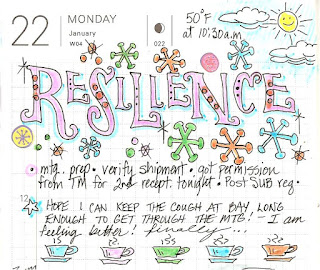 22 MONDAY 50°F
January at 10:30 a.m
W04 022
RESILIENCE
• mtg. prep • verify shipment • got permission
from TM for 2nd recept tonight • Post SUB reg •
12 HOPE I CAN KEEP THE COUGH AT BAY LONG
ENOUGH TO GET THROUGH THE MTG! - I am
feeling better! finally...